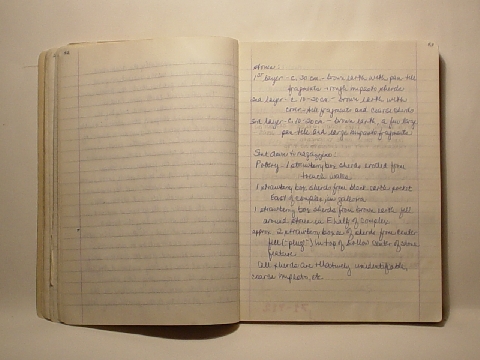 stones:
1st layer - c. 20 cm - brown earth with pan tile
fragments + rough impasto sherds
2nd layer - c. 10-20 cm - brown earth with
some tile fragments and coarse sherds
3rd layer - c. 10-20 cm - brown earth, a few tiny
pan tile and large impasto fragments
Pottery - 1 strawberry box sherds
from
trench walls
1 strawberry box sherds from black earth pocket
East of complex
1 strawberry box sherds from brown earth fill
around stones in E half of complex
approx. 2 strawberry boxes of sherds from
fill ("plug") in top of hollow center of stone
feature.
All sherds are relatively unidentifiable,
coarse impasto, etc.